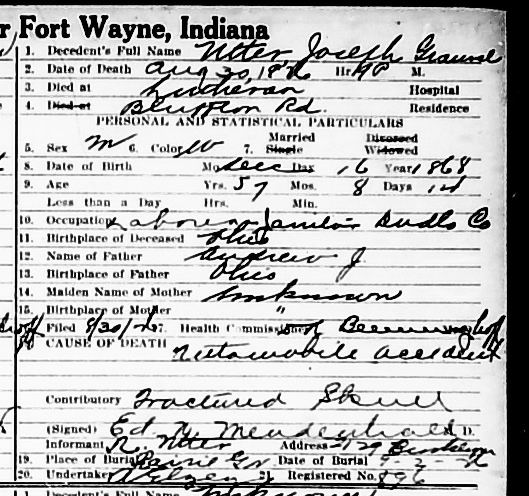 r Fort Wayne, Indiana
1. Decedent's Full Name Utter Joseph
2. Date of Death Aug 30, 1926 Hr. 4 P M.
3. Died at Lutheran Hospital
4. Died at Bluffton Rd. Residence
PERSONAL AND STATISTICAL PARTICULARS
5. Sex M 6. Color W 7. Married Single Divorced Widowed
8. Date of Birth Mo. Dec Day 16 Year 1868
9. Age Yrs. 57 Mos. 8 Days 14
Less than a Day Hrs. Min.
10. Occupation Laborer Janitor Dudlo Co
11. Birthplace of Deceased Ohio
12. Name of Father Andrew J
13. Birthplace of Father Ohio
14. Maiden Name of Mother Unknown
15. Birthplace of Mother "
Filed 8/30/26 17. Health Commissioner
CAUSE OF DEATH Automobile accident
Contributory Fractured Skull
(Signed) Ed. H. Mendenhall M. D.
Informant R. Utter Address
19. Place of Burial Prairie Gr Date of Burial 9-2-
20. Undertaker 21. Registered No. 896
1. Decedent's Full Name